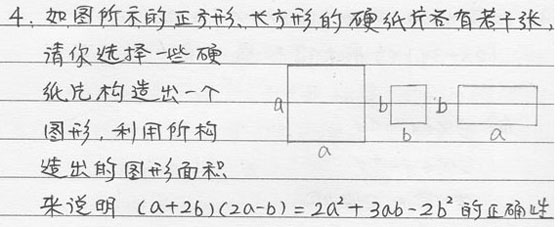 4. 如图所示的正方形、长方形的硬纸片各有若干张,
请你选择一些硬
纸片构造出一个
图形,利用所构
造出的图形面积
来说明 (a+2b)(2a-b)=2a²+3ab-2b² 的正确性
a
a
b
b
b
a